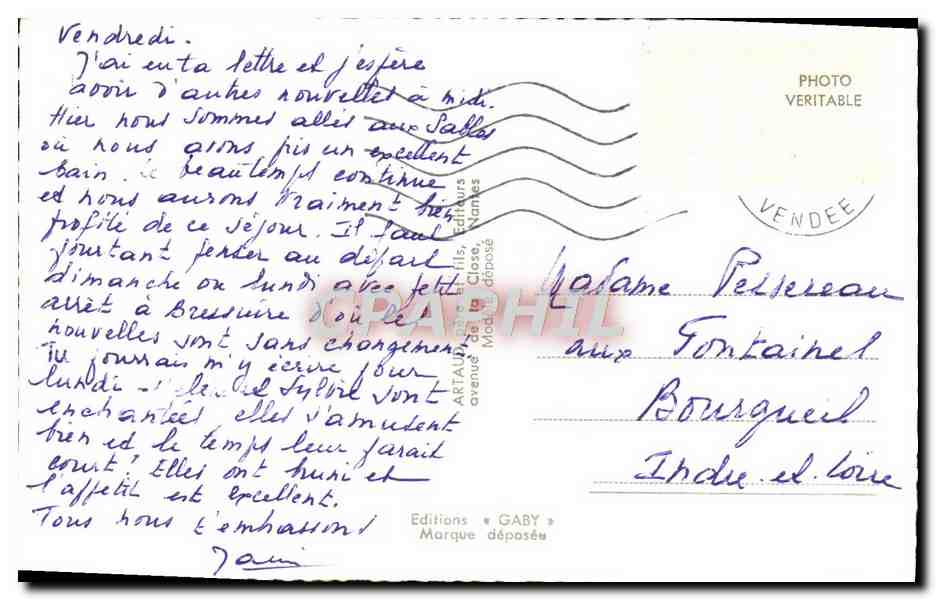 Vendredi.
J'ai eu ta lettre et j'espère
avoir d'autres nouvelles à midi.
Hier nous sommes allés aux Sables
où nous avons pris un excellent
bain. Le beau temps continue
et nous aurons vraiment bien
profité de ce séjour. Il faut
pourtant penser au départ
dimanche ou lundi avec petit
arrêt à Bressuire d'où les
nouvelles sont sans changement
Tu pourrais m'y écrire pour
lundi - et Sylvie sont
enchantées, elles s'amusent
bien et le temps leur parait
court! Elles ont bruni et
l'appetit est excellent.
Tous nous t'embrassons
PHOTO
VERITABLE
VENDEE
ARTAUD, père et fils, Editeurs
avenue de la Close, Nantes
Modèle déposé
CPAPHIL
Madame Pessereau
aux Fontaines
Bourgueil
Indre-et-Loire
Editions « GABY »
Marque déposée